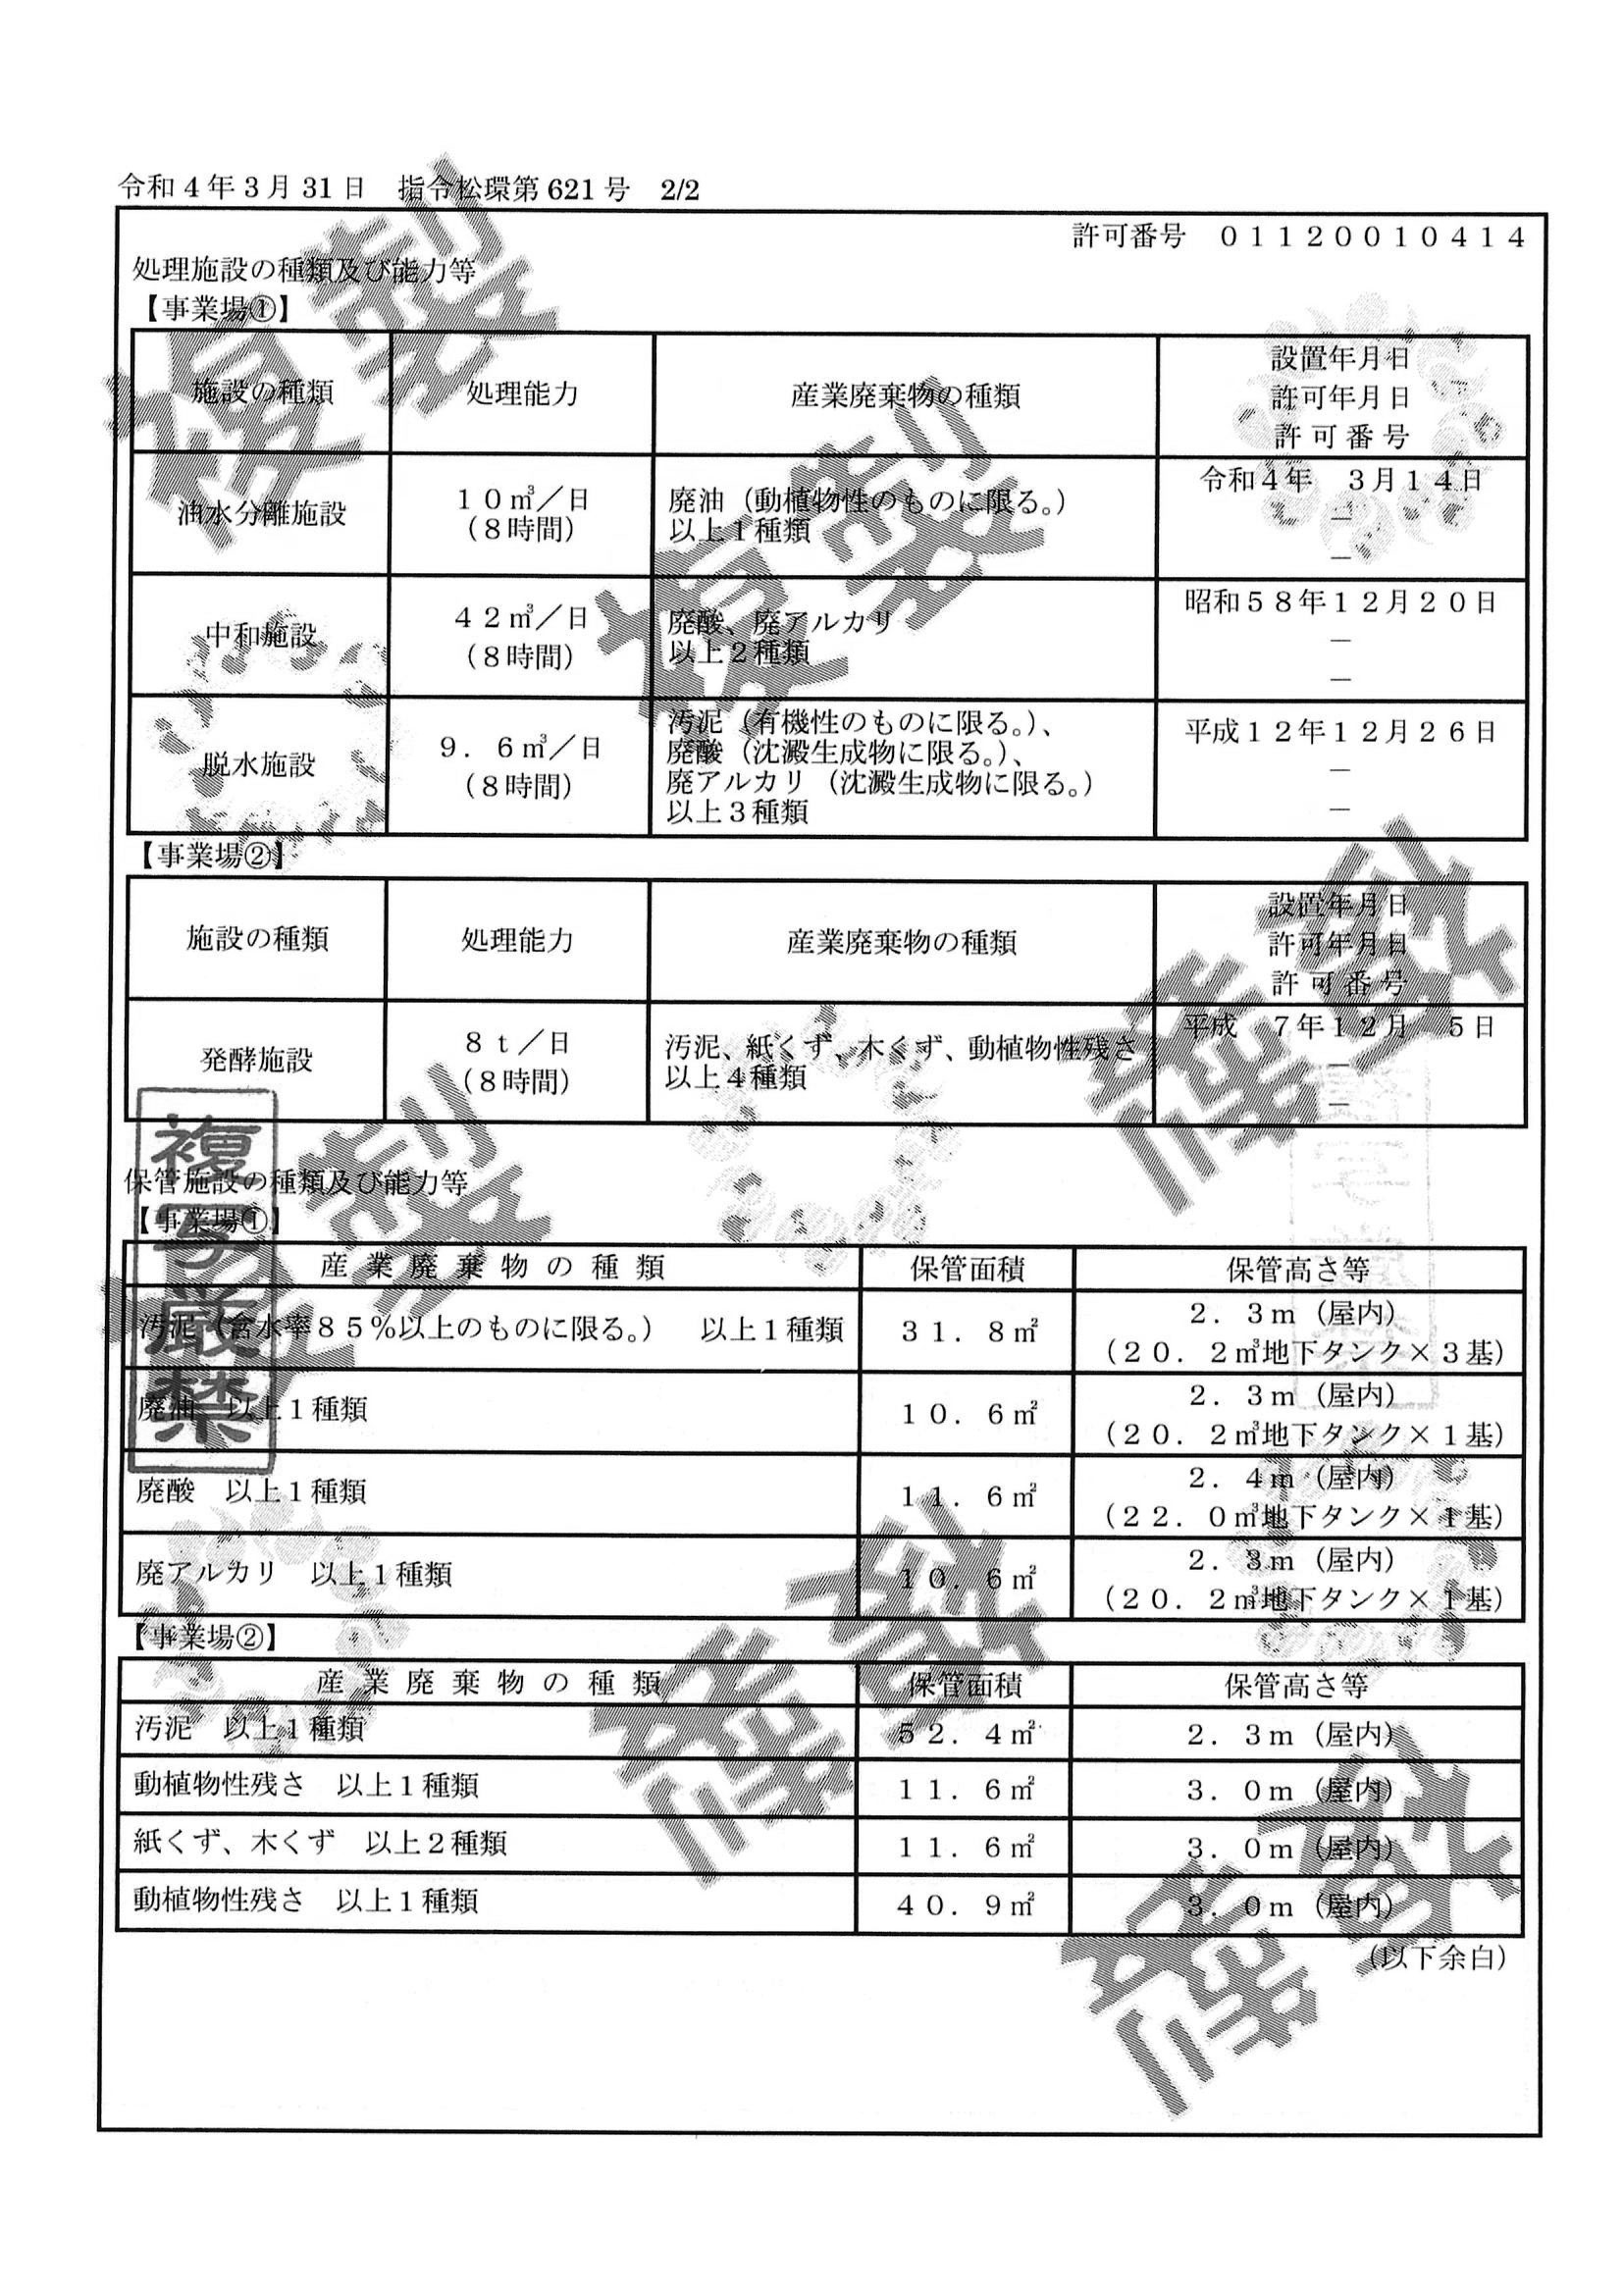 令和4年3月31日　指令松環第621号　2/2
許可番号　０１１２００１０４１４
処理施設の種類及び能力等
【事業場①】
施設の種類　処理能力　産業廃棄物の種類　設置年月日
許可年月日
許可番号
油水分離施設　１０㎥／日　廃油（動植物性のものに限る。）　令和４年　３月１４日
（８時間）　以上１種類　－
－
中和施設　４２㎥／日　廃酸、廃アルカリ　昭和５８年１２月２０日
（８時間）　以上２種類　－
－
脱水施設　９．６㎥／日　汚泥（有機性のものに限る。）、　平成１２年１２月２６日
（８時間）　廃酸（沈澱生成物に限る。）、　－
廃アルカリ（沈澱生成物に限る。）　－
以上３種類
【事業場②】
施設の種類　処理能力　産業廃棄物の種類　設置年月日
許可年月日
許可番号
発酵施設　８ｔ／日　汚泥、紙くず、木くず、動植物性残さ　平成　７年１２月　５日
（８時間）　以上４種類　－
－
保管施設の種類及び能力等
【事業場①】
産業廃棄物の種類　保管面積　保管高さ等
汚泥（含水率８５％以上のものに限る。）　以上１種類　３１．８㎡　２．３ｍ（屋内）
（２０．２㎥地下タンク×３基）
廃油　以上１種類　１０．６㎡　２．３ｍ（屋内）
（２０．２㎥地下タンク×１基）
廃酸　以上１種類　１１．６㎡　２．４ｍ（屋内）
（２２．０㎥地下タンク×１基）
廃アルカリ　以上１種類　１０．６㎡　２．３ｍ（屋内）
（２０．２㎥地下タンク×１基）
【事業場②】
産業廃棄物の種類　保管面積　保管高さ等
汚泥　以上１種類　５２．４㎡　２．３ｍ（屋内）
動植物性残さ　以上１種類　１１．６㎡　３．０ｍ（屋内）
紙くず、木くず　以上２種類　１１．６㎡　３．０ｍ（屋内）
動植物性残さ　以上１種類　４０．９㎡　３．０ｍ（屋内）
（以下余白）
複写厳禁
複製
複製
複製
複製
複製
複製